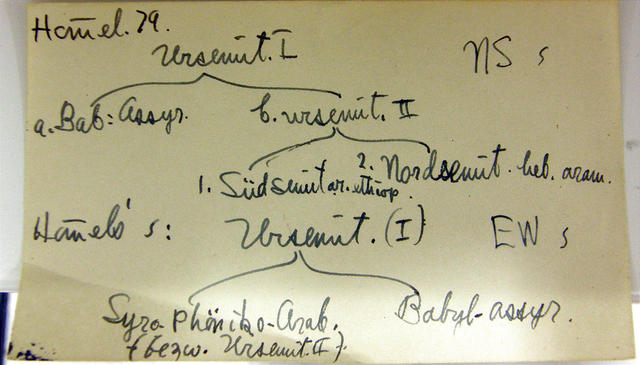 Hom̄el. 79.
Ursemit. I NS s
a. Bab: Assyr. b. ursemit. II
1. Südsemit ar. ethiop. 2. Nordsemit. heb. aram.
Hom̄els s: Ursemit. (I) EW s
Syro-Phöniko-Arab. Babyl-assyr.
(bezw. Ursemit. II).